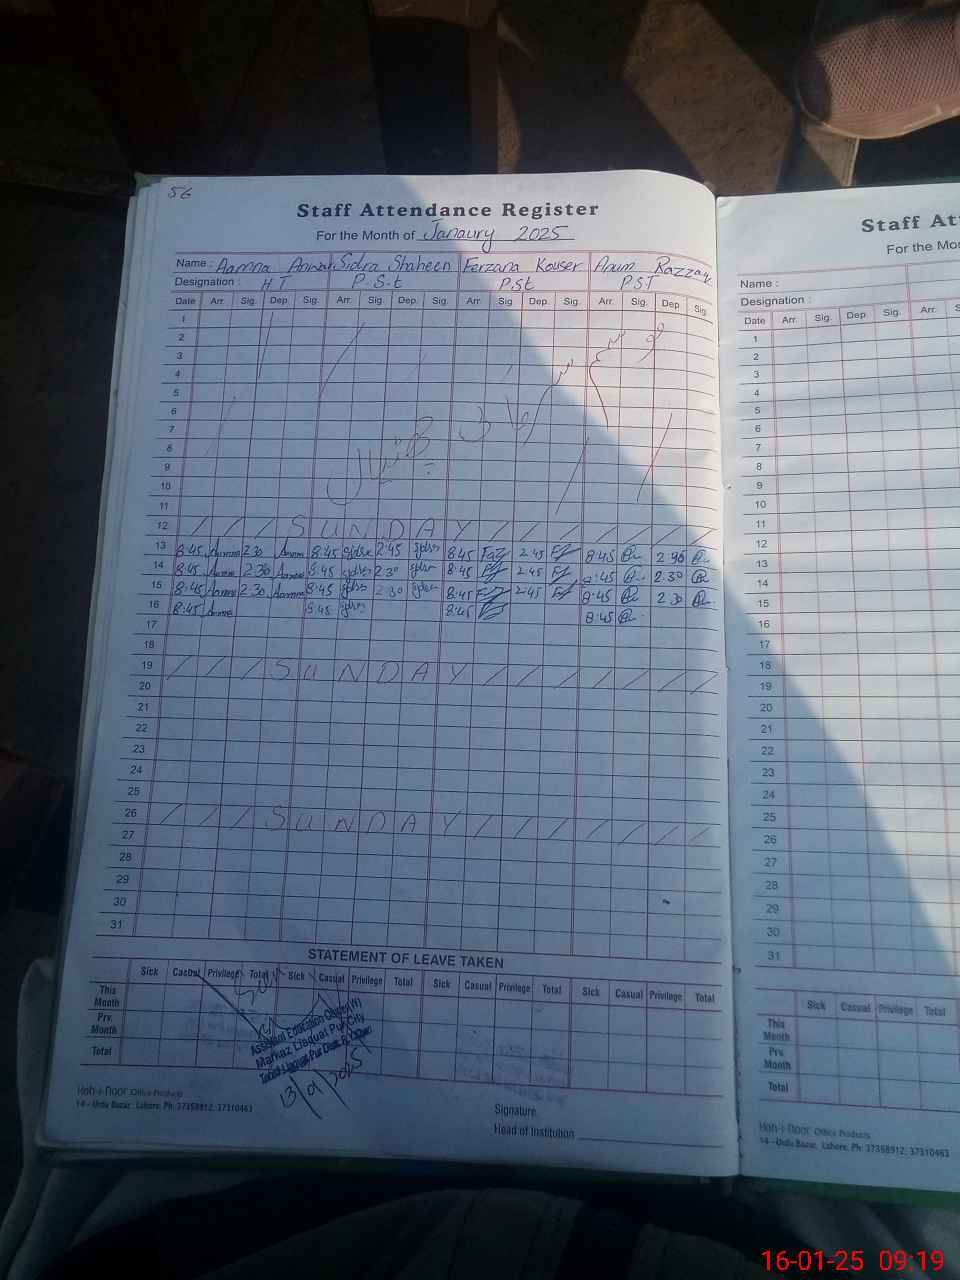 56
Staff Attendance Register
For the Month of Janaury 2025
Name : Aamna Sidra Shaheen Ferzana Kouser Anum Razzaq
Designation : H T P.S.t PSt PST
Date Arr. Sig. Dep. Sig. Arr. Sig. Dep. Sig. Arr. Sig. Dep. Sig. Arr. Sig. Dep. Sig.
1
2
3
4
5
6
7
8
9
10
11
12 / / / S U N D A Y / / / / / / /
13 8:45 Aamna 2:30 Aamna 8:45 2:45 8:45 2:45 8:45 2:30
14 8:45 Aamna 2:30 Aamna 8:45 2:30 8:45 2:45 8:45 2:30
15 8:45 Aamna 2:30 Aamna 8:45 2:30 8:45 2:45 8:45 2:30
16 8:45 Aamna 8:45 8:45 8:45
17
18
19 / / / S U N D A Y / / / / / / /
20
21
22
23
24
25
26 / / / S U N D A Y / / / / / / /
27
28
29
30
31
STATEMENT OF LEAVE TAKEN
Sick Casual Privilege Total Sick Casual Privilege Total Sick Casual Privilege Total Sick Casual Privilege Total
This Month
Prv. Month
Total
Assistant Education Officer (W)
Markaz Liaquat Pur City
13/01/2025
Koh-i-Noor Office Products
14 - Urdu Bazar, Lahore, Ph: 37358912, 37310463
Signature
Head of Institution
Staff At
For the Mo
Name :
Designation :
Date Arr. Sig. Dep. Sig. Arr. S
1
2
3
4
5
6
7
8
9
10
11
12
13
14
15
16
17
18
19
20
21
22
23
24
25
26
27
28
29
30
31
Sick Casual Privilege Total
This Month
Prv. Month
Total
Koh-i-Noor Office Products
14 - Urdu Bazar, Lahore, Ph: 37358912, 37310463
16-01-25 09:19